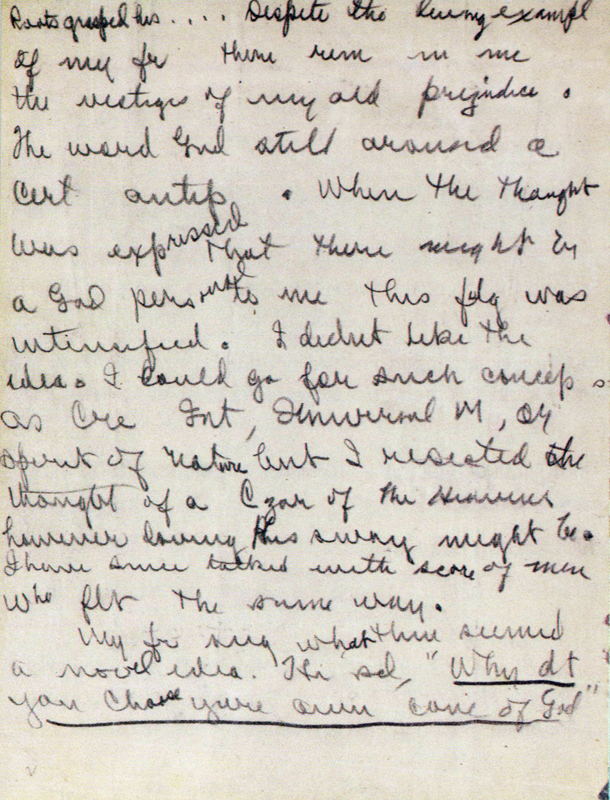 Roots grasped his .... Despite the living exampl
of my fr there rem in me
the vestiges of my old prejudice .
The word God still aroused a
Cert antip . When the thought
was expressed that there might be
a God personal to me this fdg was
intensified. I didnt like the
idea. I could go for such concep s
as Cre Int, Universal M, or
spirit of nature but I resected the
thought of a Czar of the Heavens
however loving his sway might be.
I have since talked with score of men
who flt the same way.
My fr sug what then seemed
a novel idea. He sd, "Why dt
you choose yure own conc of God"